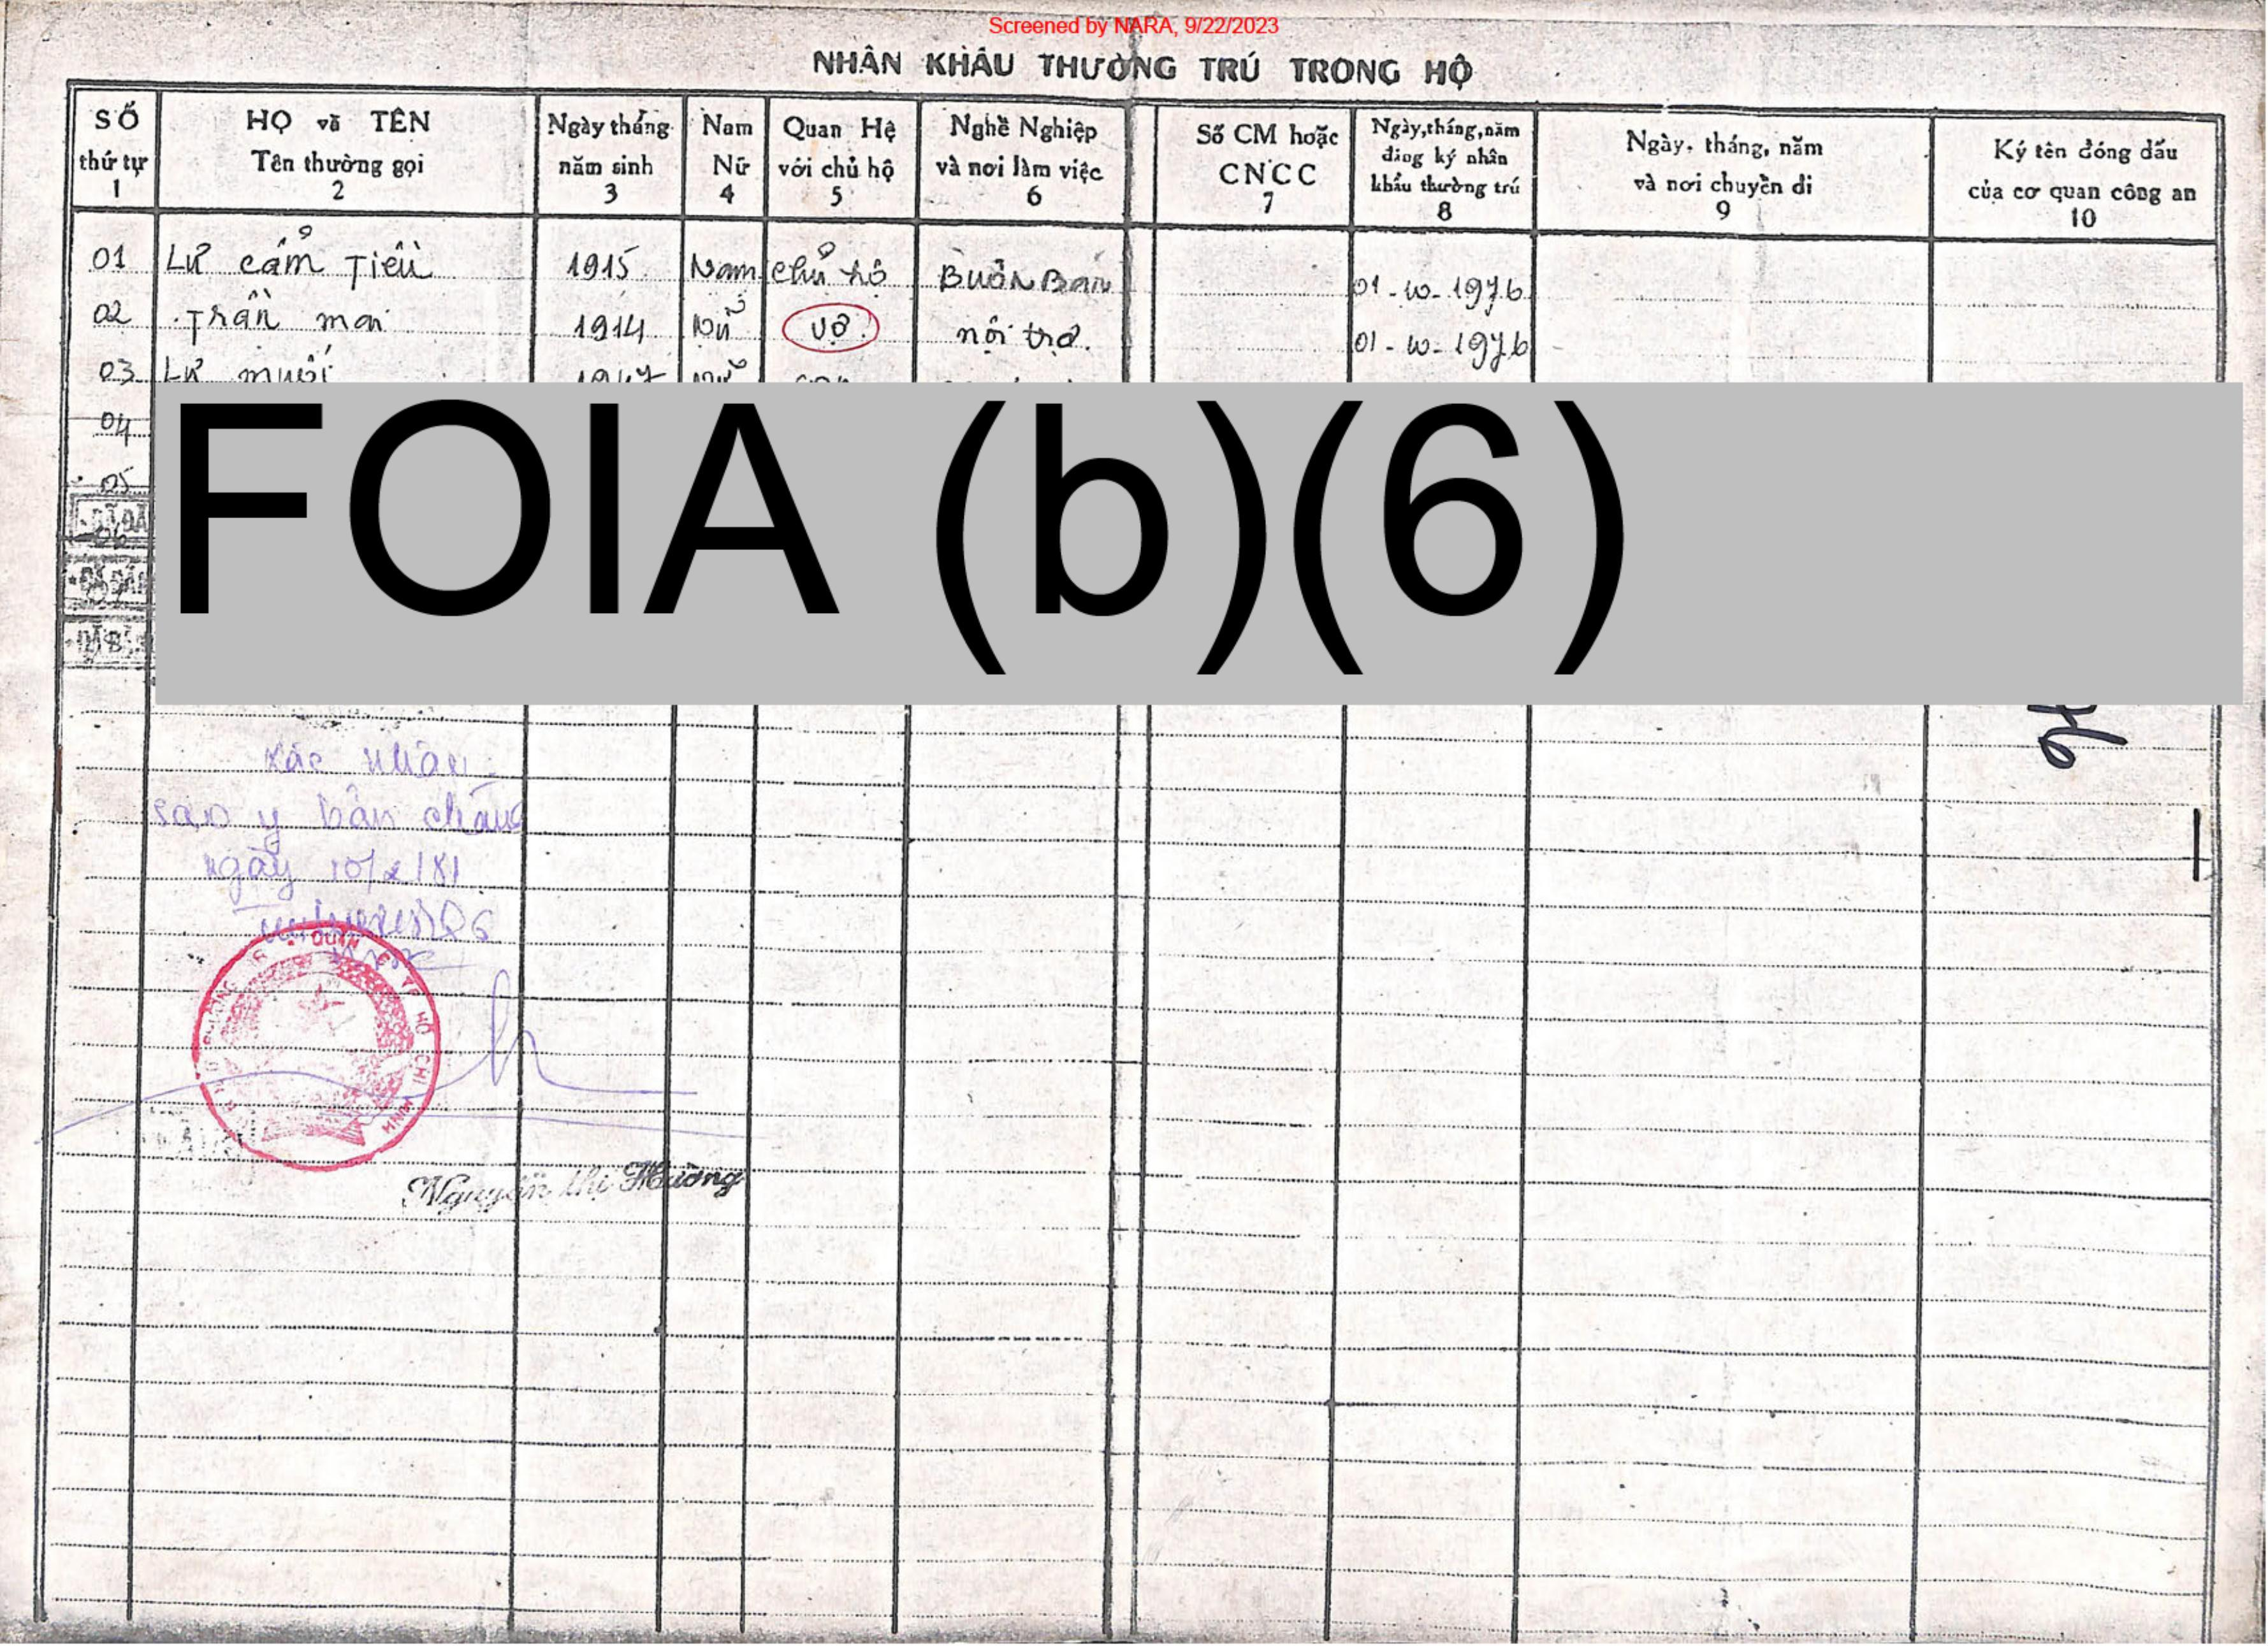 Screened by NARA, 9/22/2023
NHÂN KHẨU THƯỜNG TRÚ TRONG HỘ
SỐ thứ tự 1
HỌ và TÊN Tên thường gọi 2
Ngày tháng năm sinh 3
Nam Nữ 4
Quan Hệ với chủ hộ 5
Nghề Nghiệp và nơi làm việc 6
Số CM hoặc CNCC 7
Ngày, tháng, năm đăng ký nhân khẩu thường trú 8
Ngày, tháng, năm và nơi chuyển đi 9
Ký tên đóng dấu của cơ quan công an 10
01 Lư cẩm Tiều 1915 Nam chủ hộ Buôn Bán 01-10-1976
02 Trần mai 1914 Nữ vợ nội trợ. 01-10-1976
03 Lư muối
04
05
FOIA (b)(6)
Xác nhận
sao y bản chánh
ngày 10/2/81
QUẬN TP HỒ CHÍ MINH
Nguyễn thị Hường